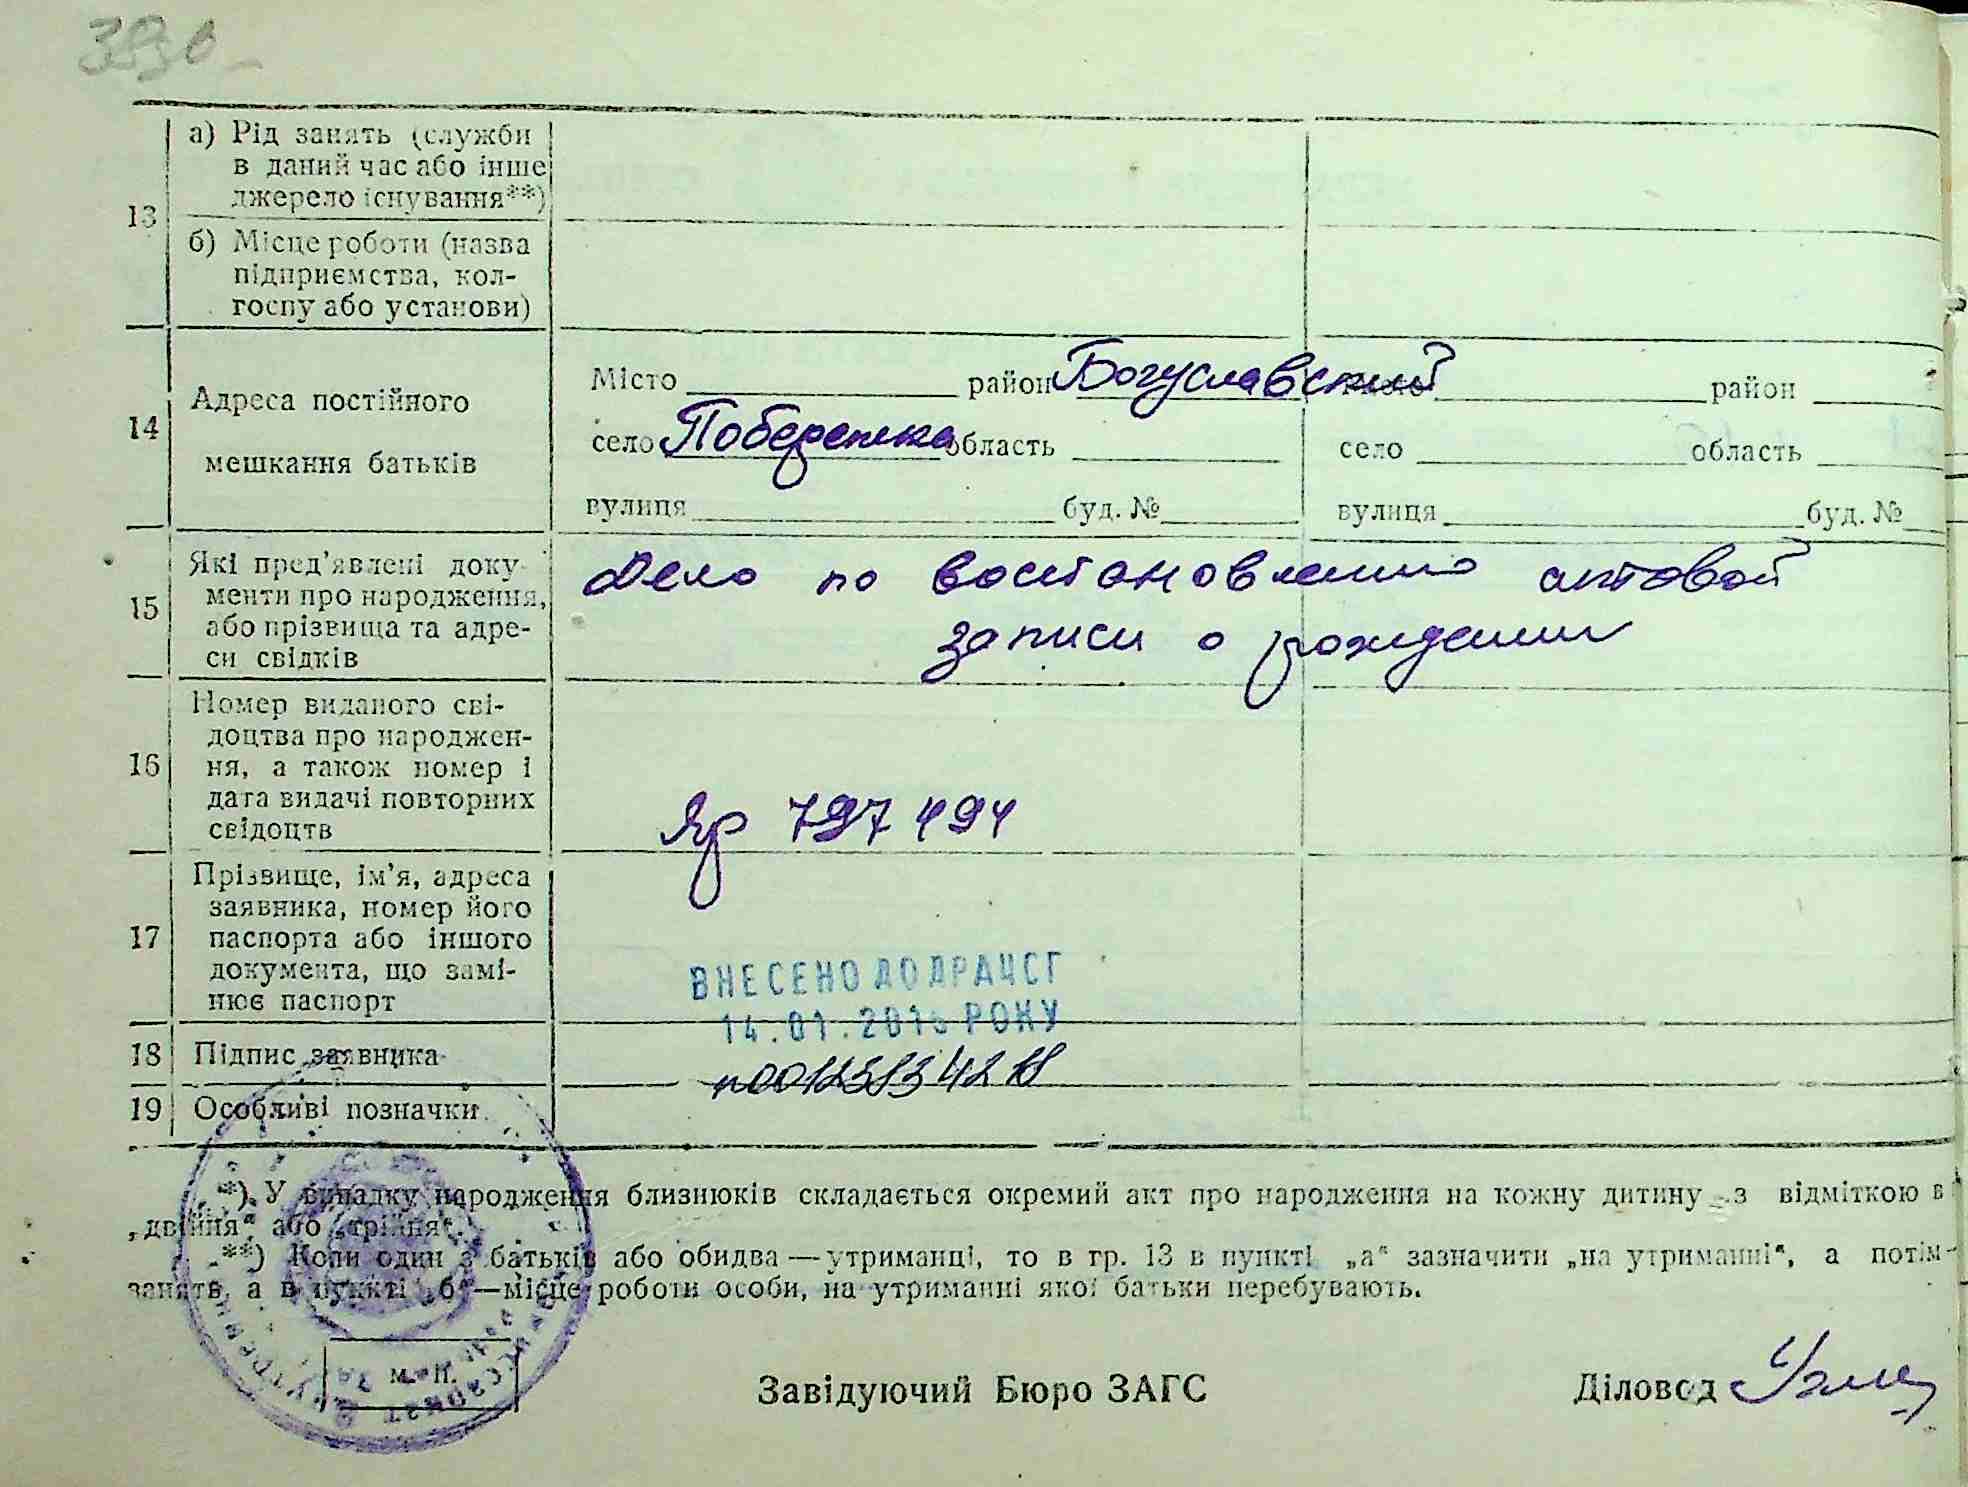 а) Рід занять (служби
в даний час або інше
джерело існування**)
13
б) Місце роботи (назва
підприємства, кол-
госпу або установи)
14
Адреса постійного
мешкання батьків
Місто район Богуславский район
село Побережка область село область
вулиця буд. № вулиця буд. №
15
Які пред'явлені доку-
менти про народження,
або прізвища та адре-
си свідків
Дело по востановлению актовой
записи о рождении
16
Номер виданого сві-
доцтва про народжен-
ня, а також номер і
дата видачі повторних
свідоцтв
Яр 797494
17
Прізвище, ім'я, адреса
заявника, номер його
паспорта або іншого
документа, що замі-
нює паспорт
ВНЕСЕНО ДО ДРАЦСГ
14.01. РОКУ
18 Підпис заявника
19 Особливі позначки
*) У випадку народження близнюків складається окремий акт про народження на кожну дитину з відміткою в
„двійня“ або „трійня“.
**) Коли один з батьків або обидва — утриманці, то в гр. 13 в пункті „а“ зазначити „на утриманні“, а потім
занять, а в пункті „б“—місце роботи особи, на утриманні якої батьки перебувають.
м. п.
Завідуючий Бюро ЗАГС
Діловод